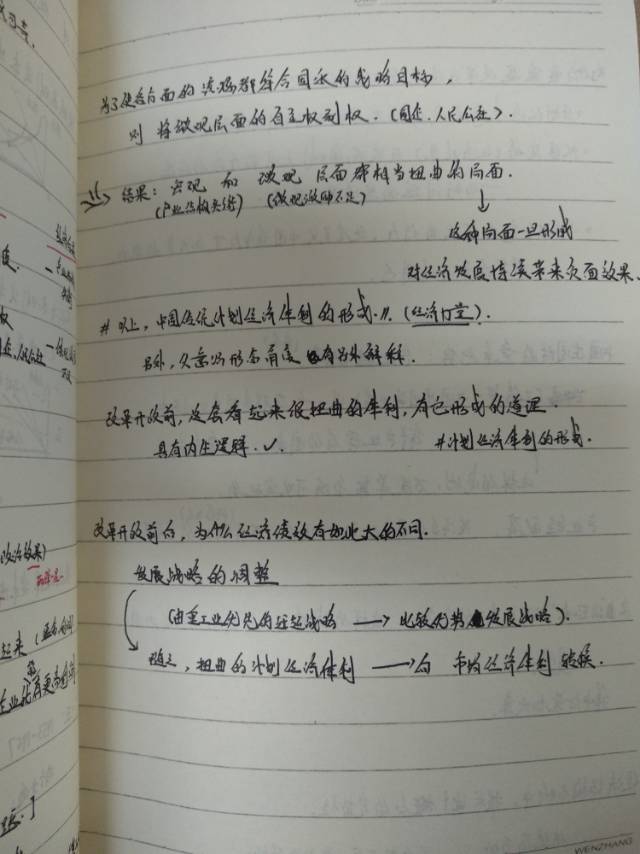 为了使各方面的资源都符合国家的战略目标，
则 将微观层面的自主权剥权．（国企．人民公社）．
结果：宏观 和 微观 层面都相当扭曲的局面．
（产业结构失衡） （微观激励不足）
↓
这种局面一旦形成
对经济发展情续带来负面效果．
# 以上，中国传统计划经济体制的形成．〃．（经济行营）．
另外，从意识形态角度 有另外解释．
改革开放前，是套看起来很扭曲的体制，有它形成的道理．
具有内生逻辑．✓． #计划经济体制的形成．
改革开放前后，为什么经济绩效有如此大的不同．
发展战略的调整
（由重工业优先的赶超战略 → 比较优势 发展战略）．
随之，扭曲的计划经济体制 → 向 市场经济体制 转换．
（政治效果）
起来
WENZHANG